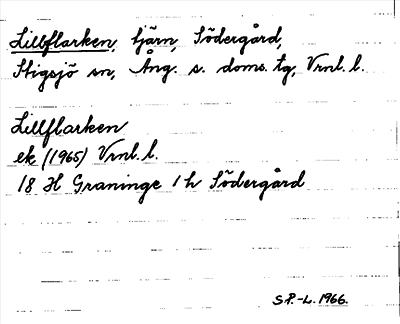 Lillflarken, tjärn, Södergård,
Stigsjö sn, Ång. s. doms. tg, Vrnl. l.
Lillflarken
ek (1965) Vrnl. l.
18 H Graninge 1 h Södergård
S P.-L. 1966.